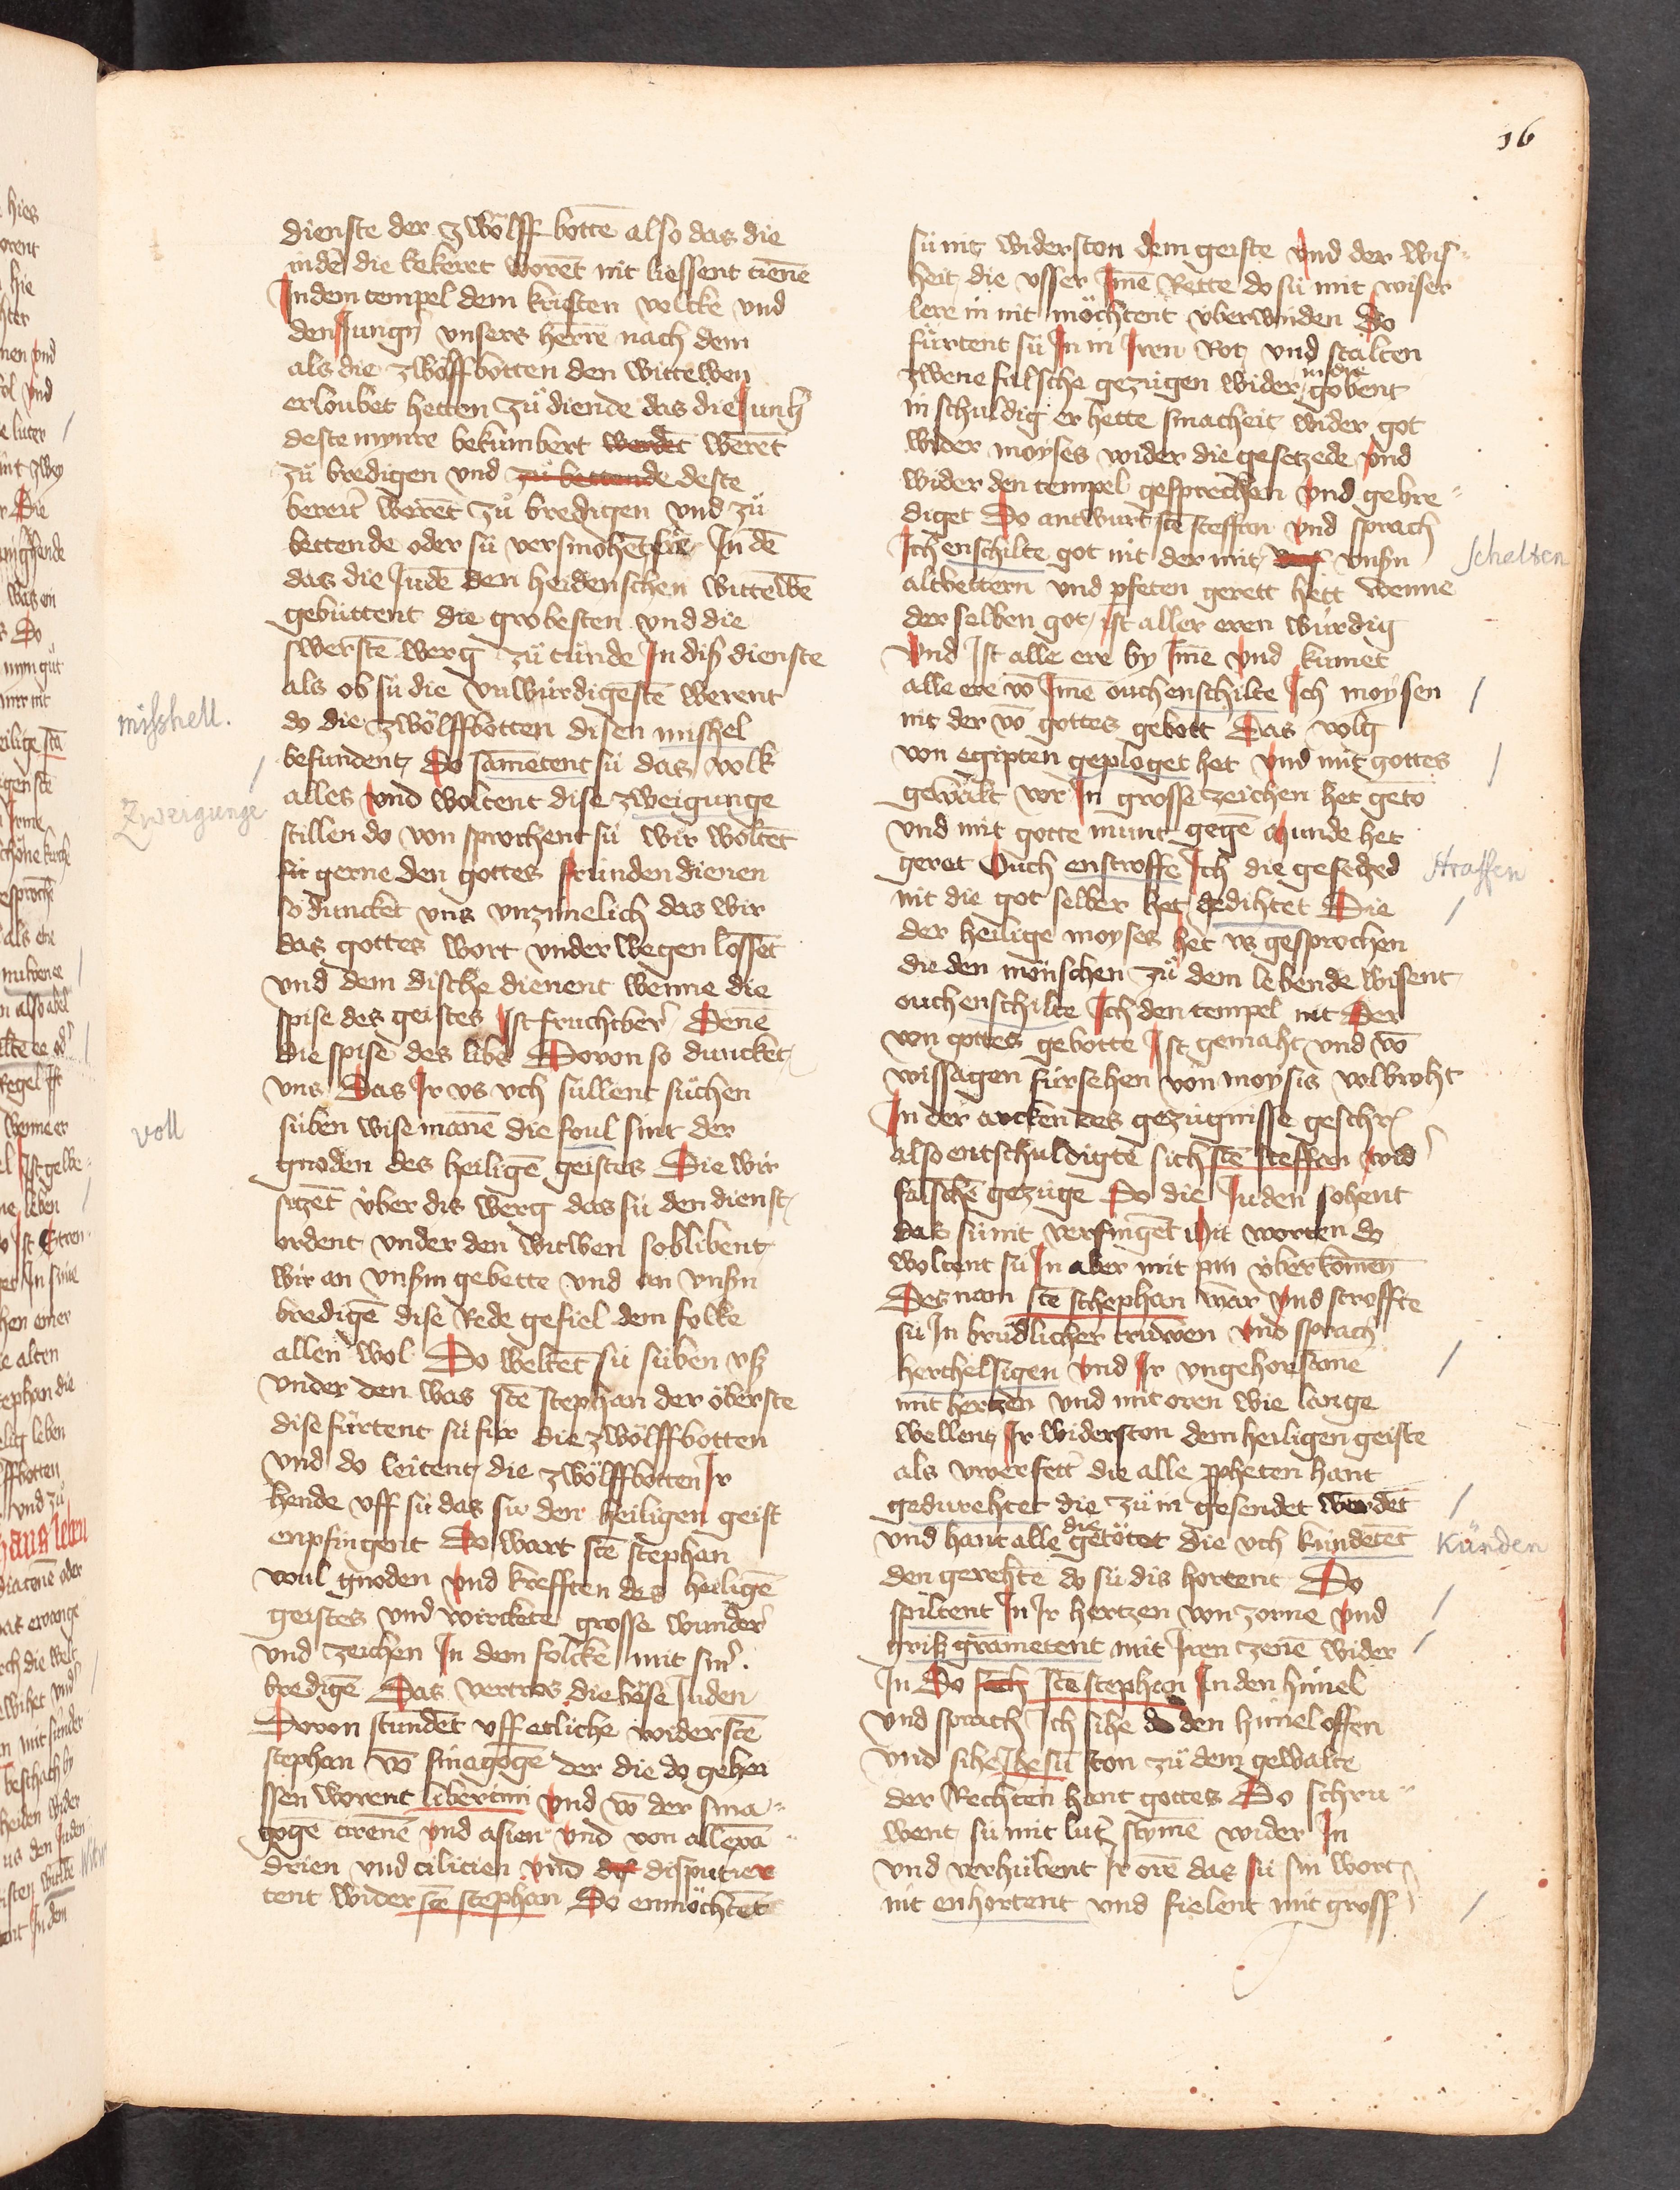 16
dienste der zwölff botte͞ also das die
inde͞ die bekeret wore͞t nit liessent diene͞
Jn dem tempel dem kristen volcke vnd
den Jung͛n vnsers herre͞ nach dem
als die zwölffbotten den wittewen
erloubet hetten zů diende das die Jung͛
deste mynre bekumbert werde͞t were͞t
zů bredigen vnd zů bettende deste
bereit͛ were͞t zů bredigen vnd zů
bettende oder sü versmohe͞t sie Jn de͞
das die Jude͞ den heidenschen wittewe͞
gebuttent die grobesten vnd die
swerste͞ werg zů tünde Jn dis͛ dienste
als ob sü die vnwürdigeste͞ werent
do die zwölffbotten disen mishel
befundent Do sametent sü das volk
alles vnd woltent dise zweigunge
stillen do von sprochent sü wir wolte͞t
sü gerne den gottes fründen dienen
so duncket vns vnzimelich das wir
das gottes wort vnder wegen losse͞t
vnd dem dische dienent wenne die
spise des geistes Jst fruchtber͛ Dene͞
die spise des libes Dovon so duncket
vns Das Jr vs vch süllent süchen
süben wise mane͞ die foul sint der
gnoden des heilige͞ geistes Die wir
setze͞t über dis werg das sü den dienst
ordent vnder den witwen so blibent
wir an vns͛m gebette vnd an vns͛m
bredige͞ dise Rede gefiel dem folke
allen wol Do welte͞t sü süben vß
vnder den was ste͞ stephan der öberste
dise fürtent sü für die zwölffbotten
vnd do leitent die zwölffbotten Jr
hende vff sü das sü den heiligen geist
enpfingent Do wart ste͞ stephan
voul gnoden vnd krefften des heilige͞
geistes vnd wirckete grosse wunder͛
vnd zeichen Jn dem folcke mit sin͛
bredige͞ Das vertros die böse Juden
Dovon stunde͞t vff etliche wider ste͞
stephan vo͞ sinagoge͞ der die do gehei
ssen worent libertini vnd vo͞ der sina
goge͞ cirene͞ vnd asien vnd von allexa͞
drien vnd cilicien vnd dis disputier
tent wider ste͞ stephan Do enmöchte͞t
sü nit widerston dem geiste vnd der wis
heit die vsser Jme͞ Rette do sü mit wiser
lere in nit möchtent überwinden Do
fürtent sü Jn in Jren Rot vnd stalten
zwene falsche gezügen wider in die gobent
in schuldig er hette smacheit wider got
wider moyses wider die gesetzede vnd
wider den tempel gesprochen vnd gebre
diget Do antwurt ste͞ steffan vnd sprach
Jch enschilte got nit der mit vns͛n
altvettern vnd pfeten gerett hett wenne
der selben got ist aller eren würdig
Vnd Jst alle ere by Jme͞ vnd kumet
alle ere vo͞ Jme͞ ouch enschilte Jch moysen
nit der vo͞ gottes gebott Das volg
von egipten geploget het vnd mit gottes
gewalt vor Jn grosse zeichen het geto͞
vnd mit gotte munt gege͞ munde het
geret Ouch enstroffe Jch die gesetzed
nit die got selber het gedihtet Die
der heilige moyses het vs gesprochen
die den mönschen zů dem lebende wisent
ouch enschilte Jch den tempel nit Der
von gottes gebotte Jst gemaht vnd vo͞
wissagen fürsehen von moysis volbroht
Jn der arcken des gezügnisse geschr͛
also entschuldigte sich ste͞ steffan wid͛
falsche͞ gezüge Do die Juden sohent
das sü nit verfinge͞t mit worten do
woltent sü Jn aber mit pin überkome͞
Des nam ste͞ schephan war vnd stroffte
sü Jn brüdlicher truwen vnd sprach
herthelsigen vnd Jr vngehorsame
mit hertzen vnd mit oren wie lange
wellent Jr widerston dem heiligen geiste
als vwer fett͛ die alle ppheten hant
gedurehtet die zů in gesendet worde͞t
vnd hant alle die getötet die vch kündete͞t
den gerehte͞ do sü dis hortent Do
spiltent Jn Jr hertzen von zorne vnd
gris grametent mit Jren zene͞ wider
Jn Do sach ste͞ stephan Jn den himel
vnd sprach Jch sihe den himel offen
vnd sihe Jhesu͞ ston zů dem gewalte
der Rechten hant gottes Do schru
went sü mit lut͛ styme͞ wider Jn
vnd verhübent Jr ore͞ das sü sin wort
nit enhortent vnd fielent mit gross͛
mißhell.
Zweigunge
voll
schelten
straffen
Künden